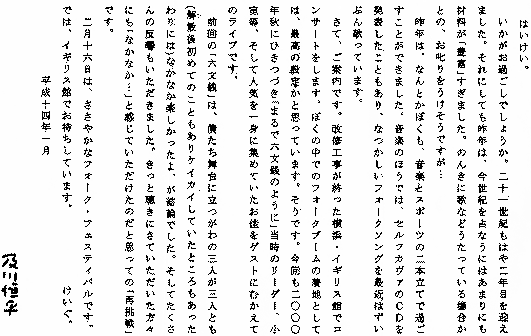 はいけい。
いかがお過ごしでしょうか。二十一世紀もはや二年目を迎え
ました。それにしても昨年は、今世紀を占なうにはあまりにも
材料が「豊富」すぎました。のんきに歌などうたっている場合か
との、お叱りをうけそうですが…
昨年は、なんとかぼくも、音楽とスポーツの二本立てで過ご
すことができました。音楽のほうでは、セルフカヴァのCDを
発表したこともあり、なつかしいフォークソングを最近はずい
ぶん歌っています。
さて、ご案内です。改修工事が終った横浜・イギリス館でコ
ンサートをします。ぼくの中でのフォークブームの発地として
は、最高の設定かと思っています。そうです。今回も二〇〇〇
年秋にひきつづき『まるで六文銭のように』当時のリーダー、小
室等、そして人気を一身に集めていたお佳をゲストにむかえて
のライブです。
前回の「六文銭」は、僕たち舞台に立つがわの三人が三人とも
(解散後初めてのこともありケイカイしていたところもあった
わりには)なかなか楽しかったよ、が結論でした。そしてたくさ
んの反響もいただきました。きっと聴きにきていただいた方々
にも「なかなか…」と感じていただけたのだと思っての「再挑戦」
です。
二月十六日は、ささやかなフォーク・フェスティバルです。
では、イギリス館でお待ちしています。 けいぐ。
平成十四年一月
及川恒平